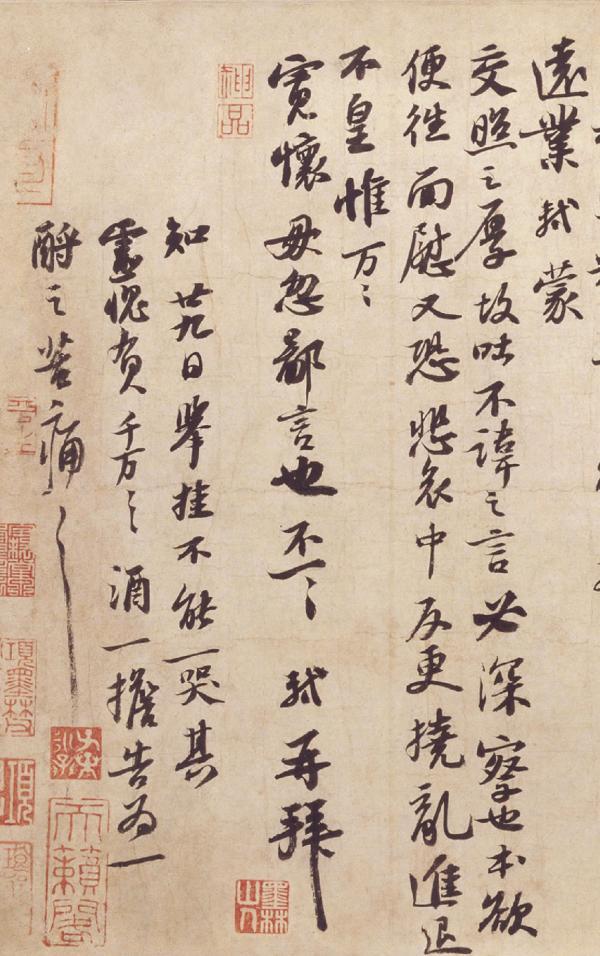 遠業軾蒙
交照之厚故吐不諱之言必深察也本欲
便往面慰又恐悲哀中反更撓亂進退
不皇惟万〻
寬懷毋忽鄙言也不一〻 軾再拜
知廿九日舉挂不能一哭其
靈愧負千万〻酒一擔告為一
酹之苦痛〻
墨林山人
天籟閣
項墨林